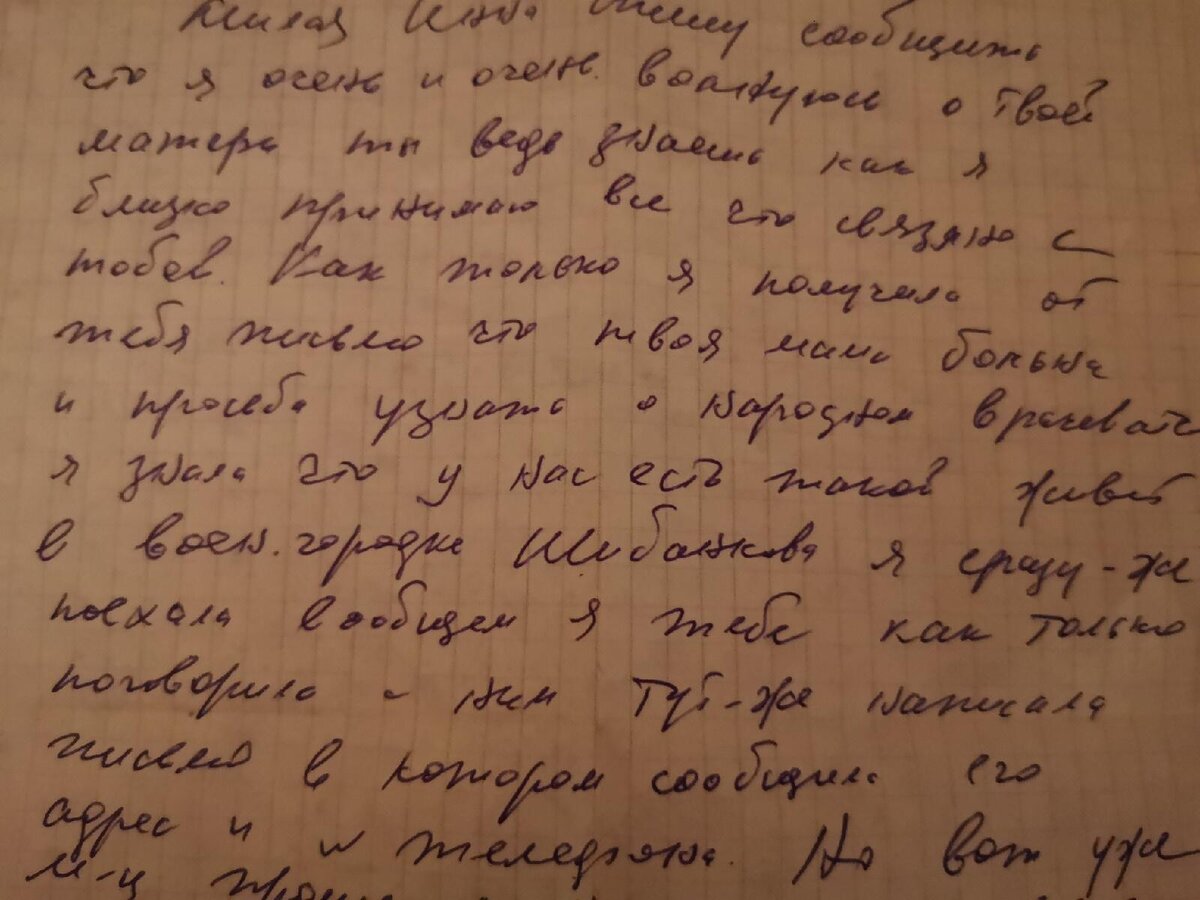 Милая Инна спешу сообщить
что я очень и очень волнуюсь о твоей
матери ты ведь знаешь как я
близко принимаю все что связано с
тобой. Как только я получила от
тебя письмо что твоя мама больна
и просьба узнать о народном врачевате
я знала что у нас есть такой живет
в воен. городке Шибанкова я сразу-же
поехала вообщем я тебе как только
поговорила с ним тут-же написала
письмо в котором сообщила его
адрес и № телефона. Но вот уже
м-ц